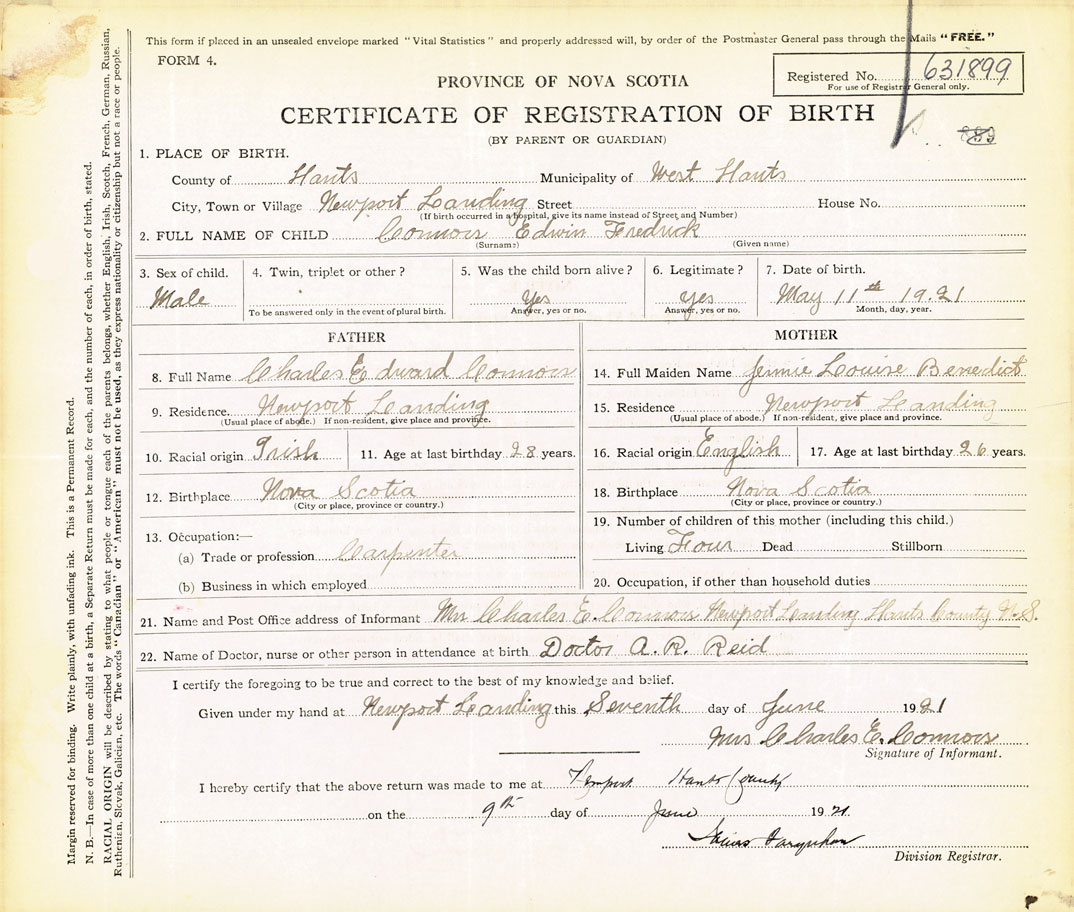 This form if placed in an unsealed envelope marked "Vital Statistics" and properly addressed will, by order of the Postmaster General pass through the Mails "FREE."
FORM 4.
Registered No. 631899
For use of Registrar General only.
PROVINCE OF NOVA SCOTIA
CERTIFICATE OF REGISTRATION OF BIRTH
(BY PARENT OR GUARDIAN)
1. PLACE OF BIRTH.
County of Hants Municipality of West Hants
City, Town or Village Newport Landing Street House No.
(If birth occurred in a hospital, give its name instead of Street and Number)
2. FULL NAME OF CHILD Connors Edwin Fredrick
(Surname) (Given name)
3. Sex of child. Male
4. Twin, triplet or other?
To be answered only in the event of plural birth.
5. Was the child born alive? Yes
Answer, yes or no.
6. Legitimate? yes
Answer, yes or no.
7. Date of birth. May 11th 1921
Month, day, year.
FATHER
8. Full Name Charles Edward Connors
9. Residence. Newport Landing
(Usual place of abode.) If non-resident, give place and province.
10. Racial origin Irish 11. Age at last birthday 28 years.
12. Birthplace Nova Scotia
(City or place, province or country.)
13. Occupation:—
(a) Trade or profession Carpenter
(b) Business in which employed
MOTHER
14. Full Maiden Name Jennie Louise Benedict
15. Residence Newport Landing
(Usual place of abode.) If non-resident, give place and province.
16. Racial origin English 17. Age at last birthday 26 years.
18. Birthplace Nova Scotia
(City or place, province or country.)
19. Number of children of this mother (including this child.)
Living Four Dead Stillborn
20. Occupation, if other than household duties
21. Name and Post Office address of Informant Mrs Charles E. Connors Newport Landing Hants County N.S.
22. Name of Doctor, nurse or other person in attendance at birth Doctor A. R. Reid
I certify the foregoing to be true and correct to the best of my knowledge and belief.
Given under my hand at Newport Landing this Seventh day of June 1921
Mrs Charles E. Connors
Signature of Informant.
I hereby certify that the above return was made to me at Hants County
on the 9th day of June 1921.
Division Registrar.
Margin reserved for binding. Write plainly, with unfading ink. This is a Permanent Record.
N. B.—In case of more than one child at a birth, a Separate Return must be made for each, and the number of each, in order of birth, stated.
RACIAL ORIGIN will be described by stating to what people or tongue each of the parents belongs, whether English, Irish, Scotch, French, German, Russian,
Ruthenian, Slovak, Galician, etc. The words "Canadian" or "American" must not be used, as they express nationality or citizenship but not a race or people.